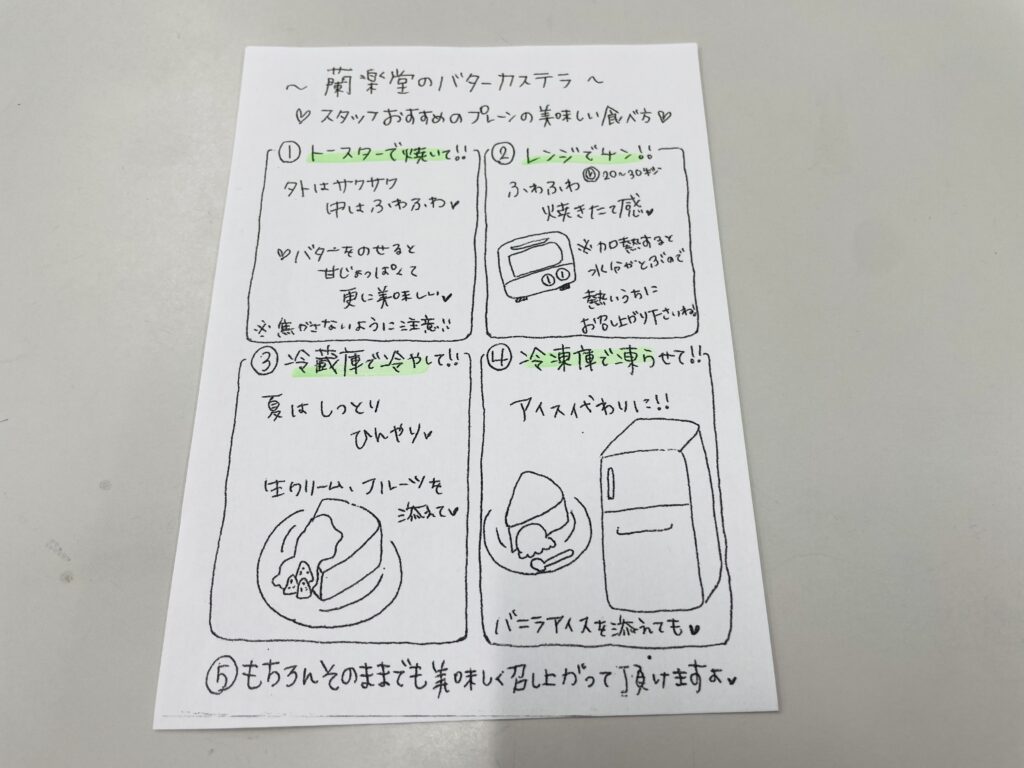 ～ 蘭楽堂のバターカステラ ～
♡ スタッフおすすめのプレーンの美味しい食べ方 ♡
① トースターで焼いて!!
外はサクサク
中はふわふわ♥
♡バターをのせると
甘じょっぱくて
更に美味しい♥
※ 焦がさないように注意!!
② レンジでチン!!
20～30秒
ふわふわ
焼きたて感♥
※加熱すると
水分がとぶので
熱いうちに
お召上がり下さいね
③ 冷蔵庫で冷やして!!
夏はしっとり
ひんやり♥
生クリーム、フルーツを
添えて♥
④ 冷凍庫で凍らせて!!
アイス代わりに!!
バニラアイスを添えても♥
⑤もちろんそのままでも美味しく召し上がって頂けますよ♥